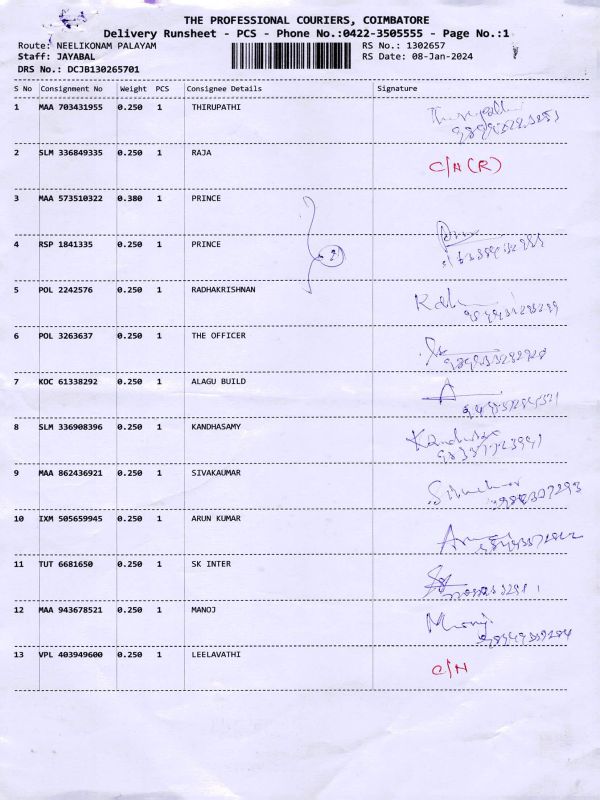 THE PROFESSIONAL COURIERS, COIMBATORE
Delivery Runsheet - PCS - Phone No.:0422-3505555 - Page No.:1
Route: NEELIKONAM PALAYAM RS No.: 1302657
Staff: JAYABAL RS Date: 08-Jan-2024
DRS No.: DCJB130265701
S No Consignment No Weight PCS Consignee Details Signature
1 MAA 703431955 0.250 1 THIRUPATHI
2 SLM 336849335 0.250 1 RAJA C/N (R)
3 MAA 573510322 0.380 1 PRINCE
4 RSP 1841335 0.250 1 PRINCE
5 POL 2242576 0.250 1 RADHAKRISHNAN
6 POL 3263637 0.250 1 THE OFFICER
7 KOC 61338292 0.250 1 ALAGU BUILD
8 SLM 336908396 0.250 1 KANDHASAMY
9 MAA 862436921 0.250 1 SIVAKAUMAR
10 IXM 505659945 0.250 1 ARUN KUMAR
11 TUT 6681650 0.250 1 SK INTER
12 MAA 943678521 0.250 1 MANOJ
13 VPL 403949600 0.250 1 LEELAVATHI C/N